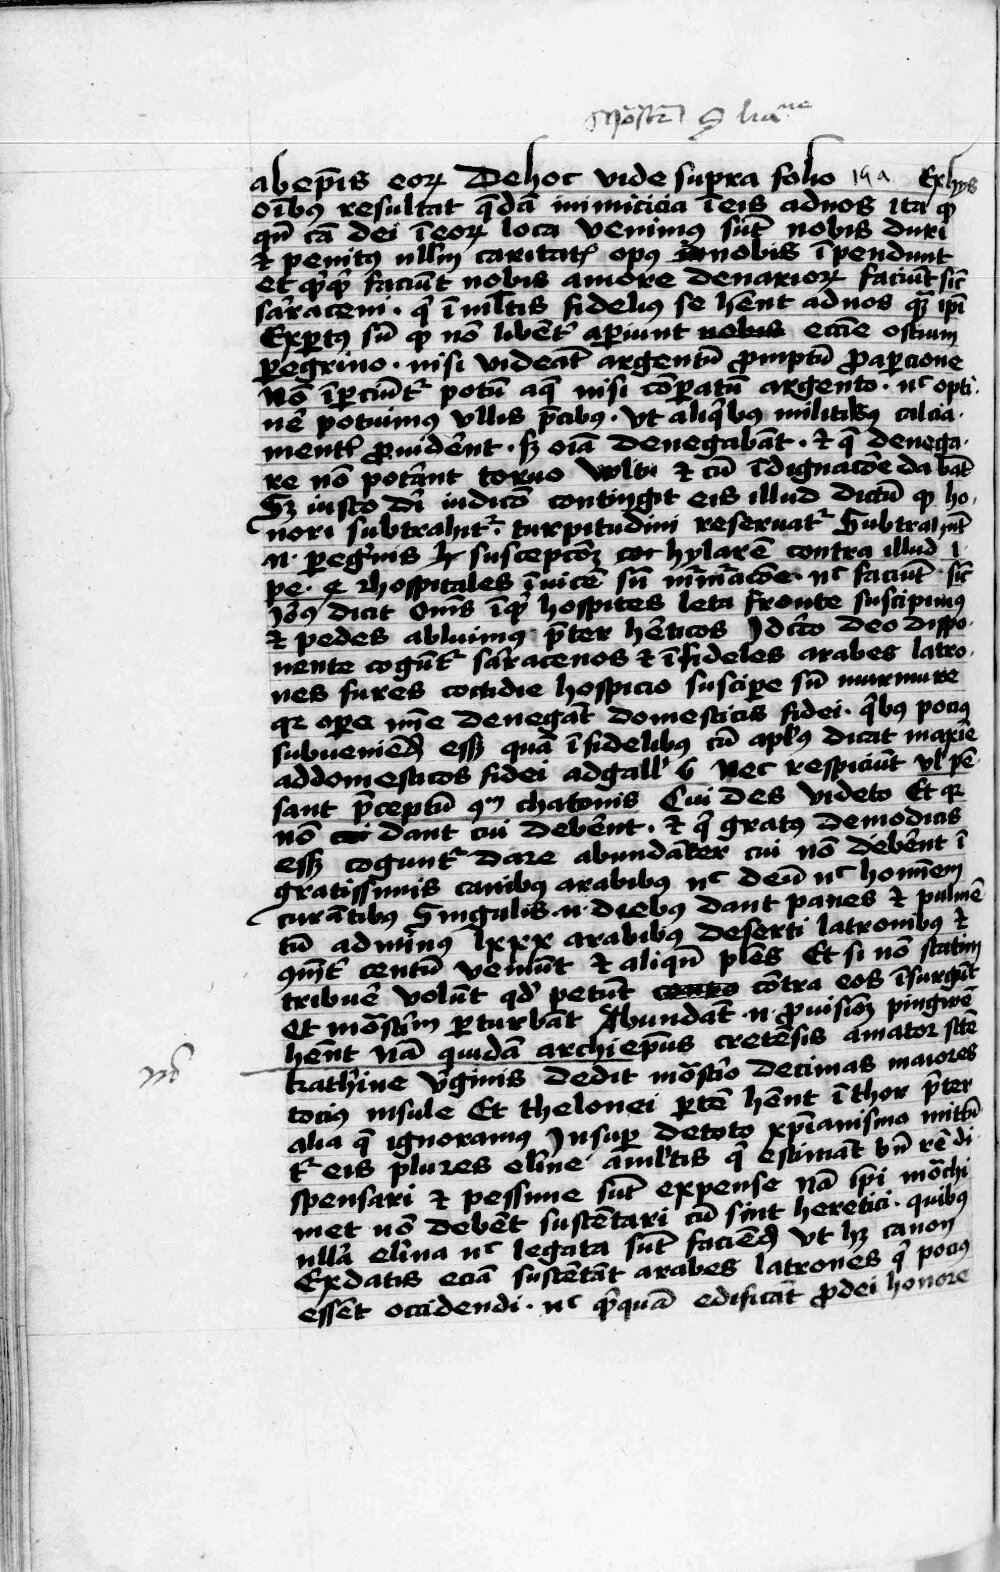 ab ep̄is eorꝝ De hoc vide supra folio 19 a Ex hys
oībꝰ resultat q̄dā inimicicia ī eis ad nos ita ꝙ
qn̄ cā dei ī eorꝝ loca venimus sūt nobis duri
⁊ penitꝰ nllm̄ caritatꝭ opus nobis īpendunt
et faciūt nobis amore denariorꝝ faciūt sic̄
sarraceni · q̇ ī ml̄tis fidelius se hēnt ad nos q̄ ip̄i
Expertꝰ sū ꝙ nō libēter aperiunt nobis eccīe ostium
peregrino · nisi videāt argentū promptū pro apercione
Nō īpercīutr potū aq̄ nisi cōparatū argento · nc opti-
nē potuimꝰ vllis p̄cibus · vt aliqͥbus militibꝰ calcia-
mentꝭ prouidēnt · sꝫ oīa denegabāt · ⁊ q̄ denega-
re nō potāant toruo vultu ⁊ cū īdignacōe dabāt
Sꝫ iusto dī iudicō contingit eis illud dictū ꝙ ho-
nori subtrahitr turpitudini reseruatr Subtrahūt
n · peregͥnis susceptōꝫ hylarē contra illud 1
pe · 4 hospitales īuicē sn̄ mr̄mracōe · nc faciūt sic̄
Jeroꝰ dicit Oīns hospites leta fronte suscipimꝰ
⁊ pedes abluimꝰ p̄ter hēticos Jdcirco deo dispo-
nente cogūtr sarracenos ⁊ īfideles arabes latro-
nes fures cottidie hospicio suscipe sn̄ murmure
qꝛ opera mīe denegāt domesticis fidei · qͥbꝰ pocius
subueniend̄ essꝫ quā īfidelibus cū apl̄us dicat maxīe
ad domesticos fidei ad gall' 6 Nec respiciūt vl' pē-
sant p̄ceptū chatonis Cui des videto Et qꝛ
nō dant cui debēnt · ⁊ q̇ gratꝰ de modicis
essꝫ coguntr dare abundāter cui nō debēnt ī
gratissimis canibꝰ arabibus nc deū nc hominem
curātibus Singulis · n · diebus dant panes ⁊ pulmē-
tū ad minus lxxx arabibus deserti latronibus ⁊
centū veniūt ⁊ aliqn̄ plēs Et si nō statim
tribuē volūt qd̄ petūt cōtra eos īsurgūt
Et mōstīm perturbāt Abundāt · n · prouisiōꝫ pingwē
hēnt Nā quidā archiep̄us cretēsis amator scte
kathine v̇ginis dedit mōstio decimas maiores
tocius insule Et thelonei ptē hēnt ī thor p̄ter
alia q̄ ignoramus Jnsuper de toto xp̄ianismo mittū-
tr eis plures elīne a multis q̇ estimāt bn̄ rē di-
spensari ⁊ pessime sūt expense Nā ip̄i mōchi
met nō debēt sustētari cū sint heretici · quibus
nulla elīna nc legata sūt faciend̄ vt hꝫ canon
Ex datis eciā sustētāt arabes latrones q̇ pocius
essēt occidendi · nc edificāt pro dei honore